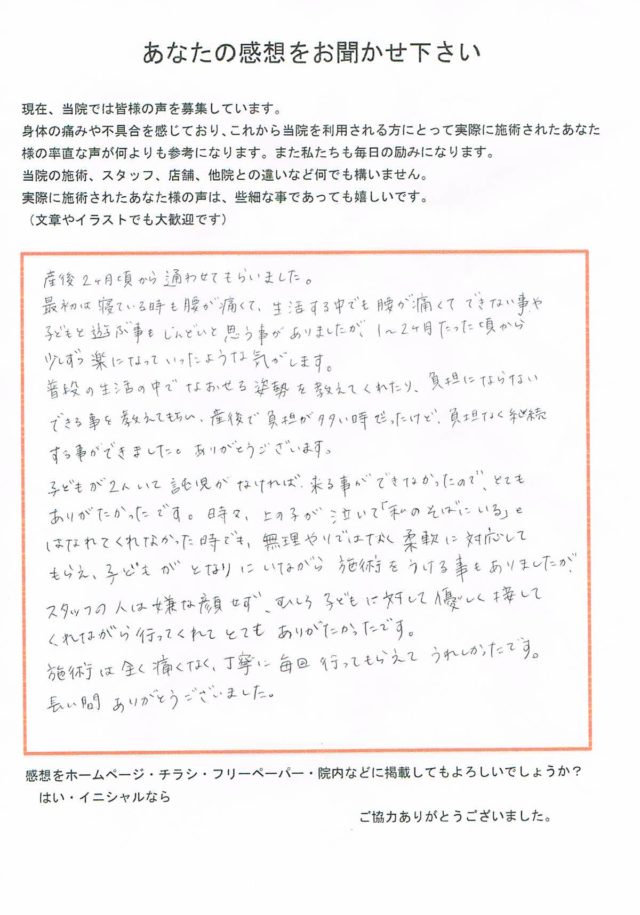 あなたの感想をお聞かせ下さい
現在、当院では皆様の声を募集しています。
身体の痛みや不具合を感じており、これから当院を利用される方にとって実際に施術されたあなた
様の率直な声が何よりも参考になります。また私たちも毎日の励みになります。
当院の施術、スタッフ、店舗、他院との違いなど何でも構いません。
実際に施術されたあなた様の声は、些細な事であっても嬉しいです。
（文章やイラストでも大歓迎です）
産後2ヶ月頃から通わせてもらいました。
最初は寝ている時も腰が痛くて、生活する中でも腰が痛くてできない事や
子どもと遊ぶ事もしんどいと思う事がありましたが、1〜2ヶ月たった頃から
少しずつ楽になっていったような気がします。
普段の生活の中でなおせる姿勢を教えてくれたり、負担にならない
できる事を教えてもらい、産後で負担が多い時だったけど、負担なく継続
する事ができました。ありがとうございます。
子どもが2人いて託児がなければ、来る事ができなかったので、とても
ありがたかったです。時々、上の子が泣いて「私のそばにいる」と
はなれてくれなかった時でも、無理やりではなく柔軟に対応して
もらえ、子どもがとなりにいながら施術をうける事もありましたが、
スタッフの人は嫌な顔せず、むしろ子どもに対して優しく接して
くれながら行ってくれてとてもありがたかったです。
施術は全く痛くなく、丁寧に毎回行ってもらえてうれしかったです。
長い間ありがとうございました。
感想をホームページ・チラシ・フリーペーパー・院内などに掲載してもよろしいでしょうか？
はい・イニシャルなら
ご協力ありがとうございました。